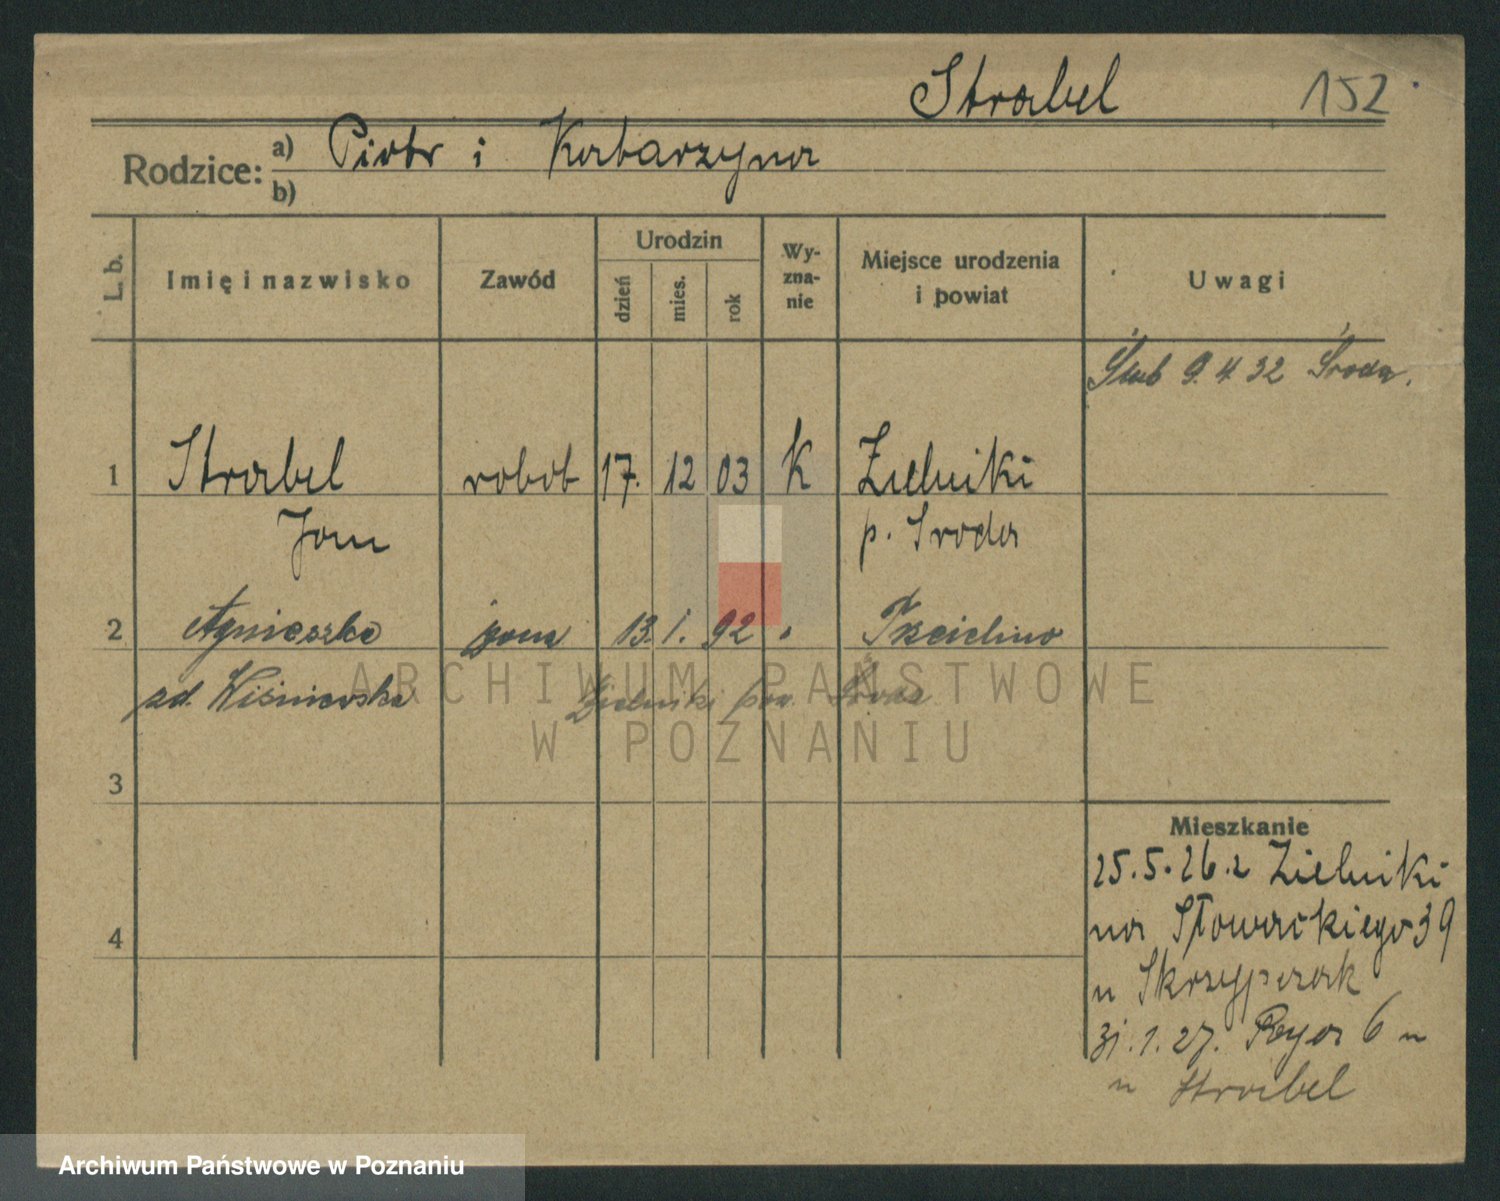 Strabel 152
Rodzice: a) Piotr i Katarzyna
b)
L. b. Imię i nazwisko Zawód Urodzin dzień mies. rok Wy-zna-nie Miejsce urodzenia i powiat Uwagi
Ślub 9. 4 32 Środa.
1 Strabel robot 17. 12 03 K Zielniki
Jan p. Sroda
2 Agnieszka żona 13. 1. 92 "
zd. Wiśniewska Zielniki pow. Środa
3
4
Mieszkanie
25.5.26. z Zielniki
na Słowackiego 39
u Skrzypczak
31.1.27. 6
u Strabel
ARCHIWUM PAŃSTWOWE
W POZNANIU
Archiwum Państwowe w Poznaniu